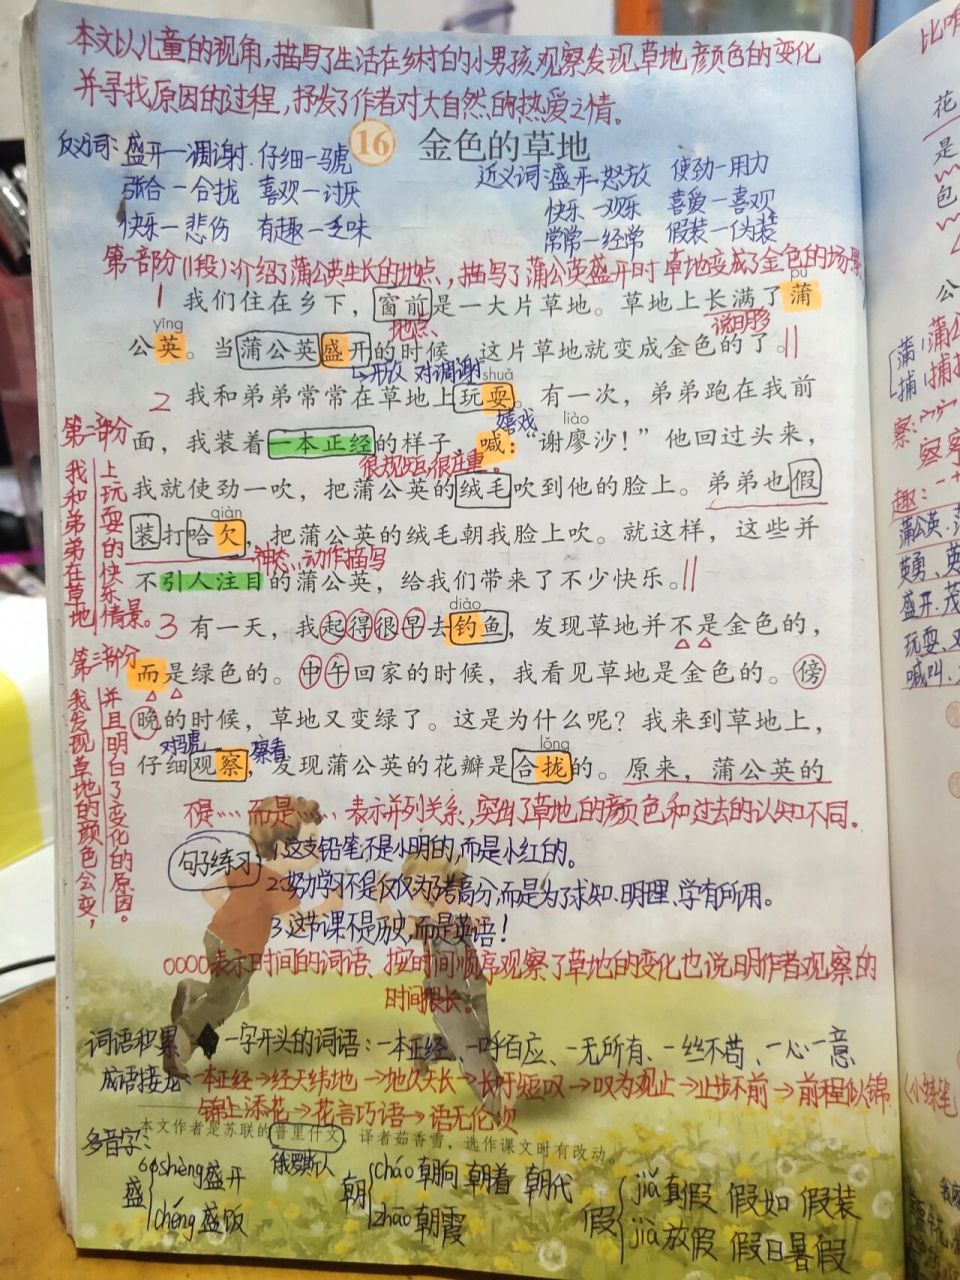 本文以儿童的视角,描写了生活在乡村的小男孩观察发现草地颜色的变化
并寻找原因的过程,抒发了作者对大自然的热爱之情。
16 金色的草地
反义词:盛开—凋谢 仔细—马虎
张合—合拢 喜欢—讨厌
快乐—悲伤 有趣—乏味
近义词:盛开—怒放 使劲—用力
快乐—欢乐 喜爱—喜欢
常常—经常 假装—伪装
第一部分(1段)介绍了蒲公英生长的地点、描写了蒲公英盛开时草地变成了金色的场景
pú
1 我们住在乡下,窗前是一大片草地。草地上长满了蒲
yīng
地点、
说明多
公英。当蒲公英盛开的时候,这片草地就变成金色的了。
→开放 对凋谢
shuǎ
2 我和弟弟常常在草地上玩耍。有一次,弟弟跑在我前
嬉戏
liào
面,我装着一本正经的样子,喊:“谢廖沙!”他回过头来,
很规矩,很庄重。
我就使劲一吹,把蒲公英的绒毛吹到他的脸上。弟弟也假
qiàn
装打哈欠,把蒲公英的绒毛朝我脸上吹。就这样,这些并
神态、动作描写
不引人注目的蒲公英,给我们带来了不少快乐。
diào
3 有一天,我起得很早去钓鱼,发现草地并不是金色的,
而是绿色的。中午回家的时候,我看见草地是金色的。傍
晚的时候,草地又变绿了。这是为什么呢?我来到草地上,
对马虎
察看
lǒng
仔细观察,发现蒲公英的花瓣是合拢的。原来,蒲公英的
第二部分
我和弟弟在草地
上玩耍的快乐情景。
第三部分
我发现草地的颜色会变,
并且明白了变化的原因。
不是……而是……表示并列关系,突出了草地的颜色和过去的认知不同。
句子练习
1.这支铅笔不是小明的,而是小红的。
2.努力学习不是仅仅为了考高分,而是为了求知、明理、学有所用。
3.这节课不是历史,而是英语!
0000表示时间的词语、按时间顺序观察了草地的变化也说明作者观察的
时间很长。
词语积累 “一”字开头的词语:一本正经、一呼百应、一无所有、一丝不苟、一心一意
成语接龙:一本正经→经天纬地→地久天长→长吁短叹→叹为观止→止步不前→前程似锦
锦上添花→花言巧语→语无伦次
本文作者是苏联的普里什文,译者茹香雪,选作课文时有改动。
俄罗斯人
多音字:
盛 shèng 盛开
chéng 盛饭
朝 cháo 朝向 朝着 朝代
zhāo 朝霞
假 jiǎ 真假 假如 假装
jià 放假 假日 暑假
花
是
包
公
蒲
捕
察:
趣:
蒲公英
英勇、
盛开、茂
玩耍、
喊叫、
小练笔